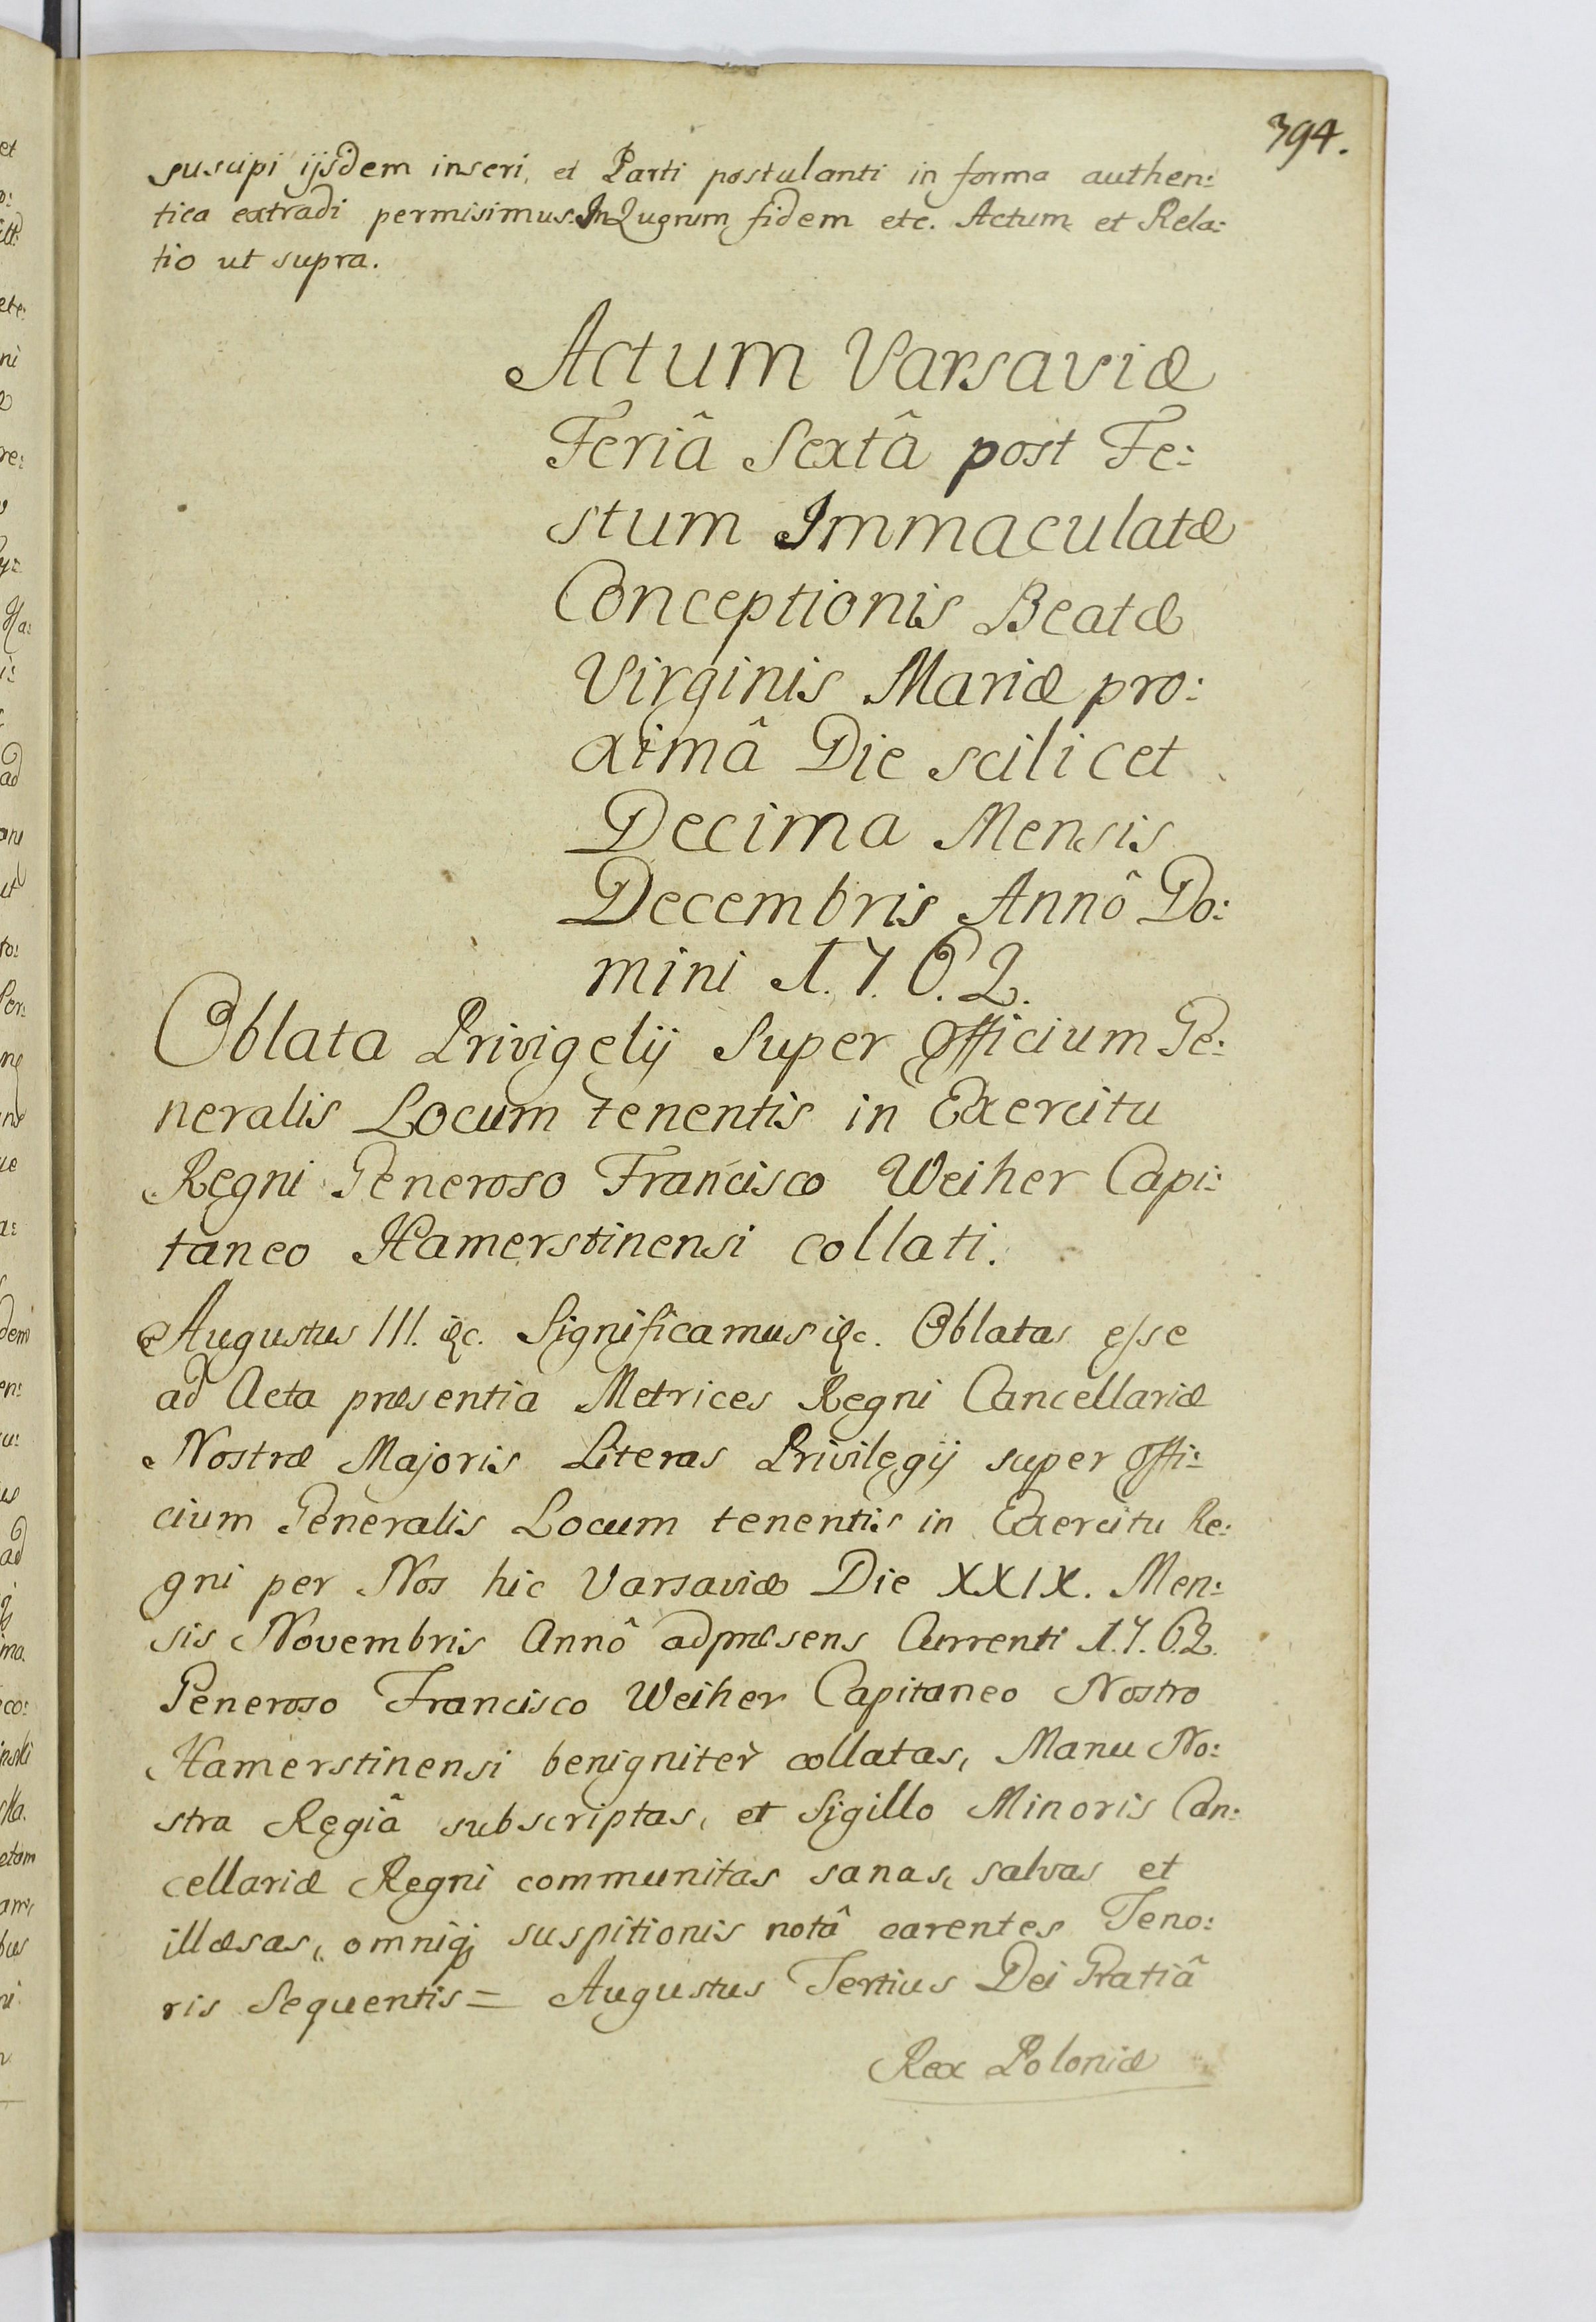 394.
suscipi ijsdem inseri, et Parti postulanti in forma authen:
tica extradi permisimus. In Quorum fidem etc. Actum et Rela:
tio ut supra.
Actum Varsaviæ
Feriâ Sextâ post Fe:
stum Immaculatæ
Conceptionis Beatæ
Virginis Mariæ pro:
ximâ Die scilicet
Decima Mensis
Decembris Annô Do:
mini 1.7.6.2.
Oblata Privigelij Super Officium Ge:
neralis Locum tenentis in Exercitu
Regni Generoso Francisco Weiher Capi:
taneo Hamerstinensi collati.
Augustus III. &c. Significamus &c. Oblatas esse
ad Acta præsentia Metrices Regni Cancellariæ
Nostræ Majoris Literas Privilegij super Offi:
cium Generalis Locum tenentis in Exercitu Re:
gni per Nos hic Varsaviæ Die XXIX. Men:
sis Novembris Annô adpræsens Currenti 1.7.6.2.
Generoso Francisco Weiher Capitaneo Nostro
Hamerstinensi benigniter collatas, Manu No:
stra Regiâ subscriptas, et Sigillo Minoris Can:
cellariæ Regni communitas sanas, salvas et
illæsas, omniq; suspitionis notâ carentes Teno:
ris Sequentis = Augustus Tertius Dei Gratiâ
Rex Poloniæ